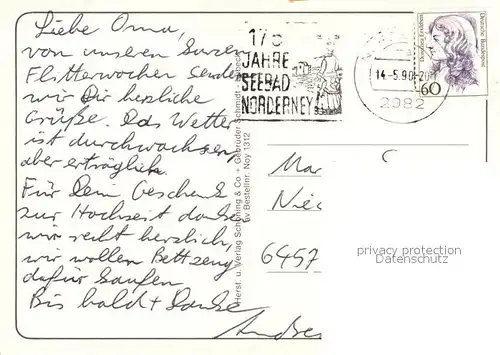 Liebe Oma,
von unseren kurzen
Flitterwochen senden
wir Dir herzliche
Grüße. Das Wetter
ist durchwachsen
aber erträglich.
Für Dein Geschenk
zur Hochzeit danken
wir recht herzlich,
wir wollen Bettzeug
dafür kaufen
Bis bald + Danke
Andrea
Herst. u. Verlag Schöning & Co + Gebrüder Schmidt
Bestellnr. Noy 1312
175
JAHRE
SEEBAD
NORDERNEY
14.-5.90
2982
Dorothea Erxleben
Deutsche Bundespost
60
Mar
Nied
6457
privacy protection
Datenschutz